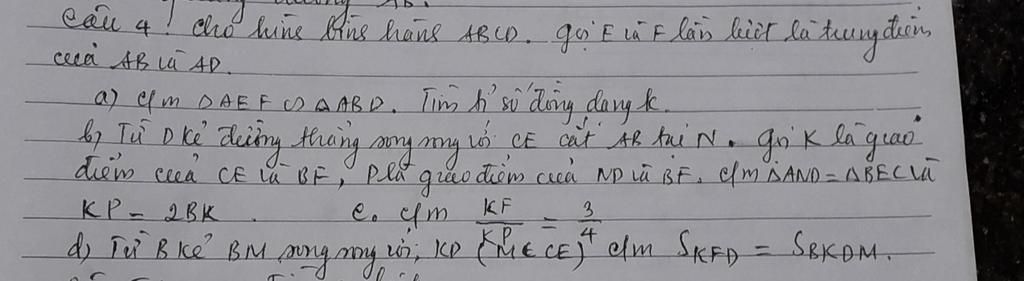 AB.
Câu 4: Cho hình bình hành ABCD. gọi E và F lần lượt là trung điểm
của AB và AD.
a) c/m ΔAEF ∽ ΔABD. Tìm tỉ số đồng dạng k.
b) Từ D kẻ đường thẳng song song với CE cắt AB tại N. gọi K là giao
điểm của CE và BF, P là giao điểm của ND và BF. c/m ΔAND = ΔBEC và
KP = 2BK. c. c/m KF/KP = 3/4
d) Từ B kẻ BM song song với KD (M ∈ CE) c/m S_KFD = S_BKDM.